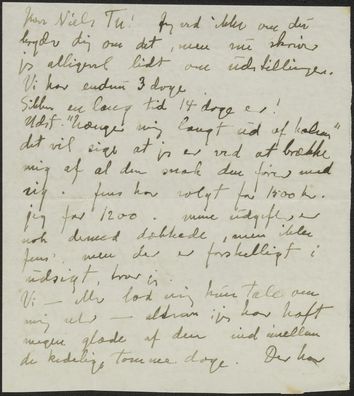 Kære Niels Th! Jeg ved ikke om det
bryder dig om det, men nu skriver
jeg alligevel lidt om udstillingen.
Vi har endnu 3 dage.
Sikken en lang tid 14 dage er!
Udst. "hænger mig langt ud af halsen"
det vil sige at jeg er ved at brække
mig af al den snak den fører med
sig. Jens har solgt for 1500 kr.
jeg for 1200. mine udgifter er
nok dermed dækkede, men ikke
Jens! men der er forskelligt i
udsigt, tror jeg.
Vi — Ah lad mig kun tale om
mig selv — altsaa jeg har haft
megen glæde af den ind imellem
de kedelige tomme dage. Der har